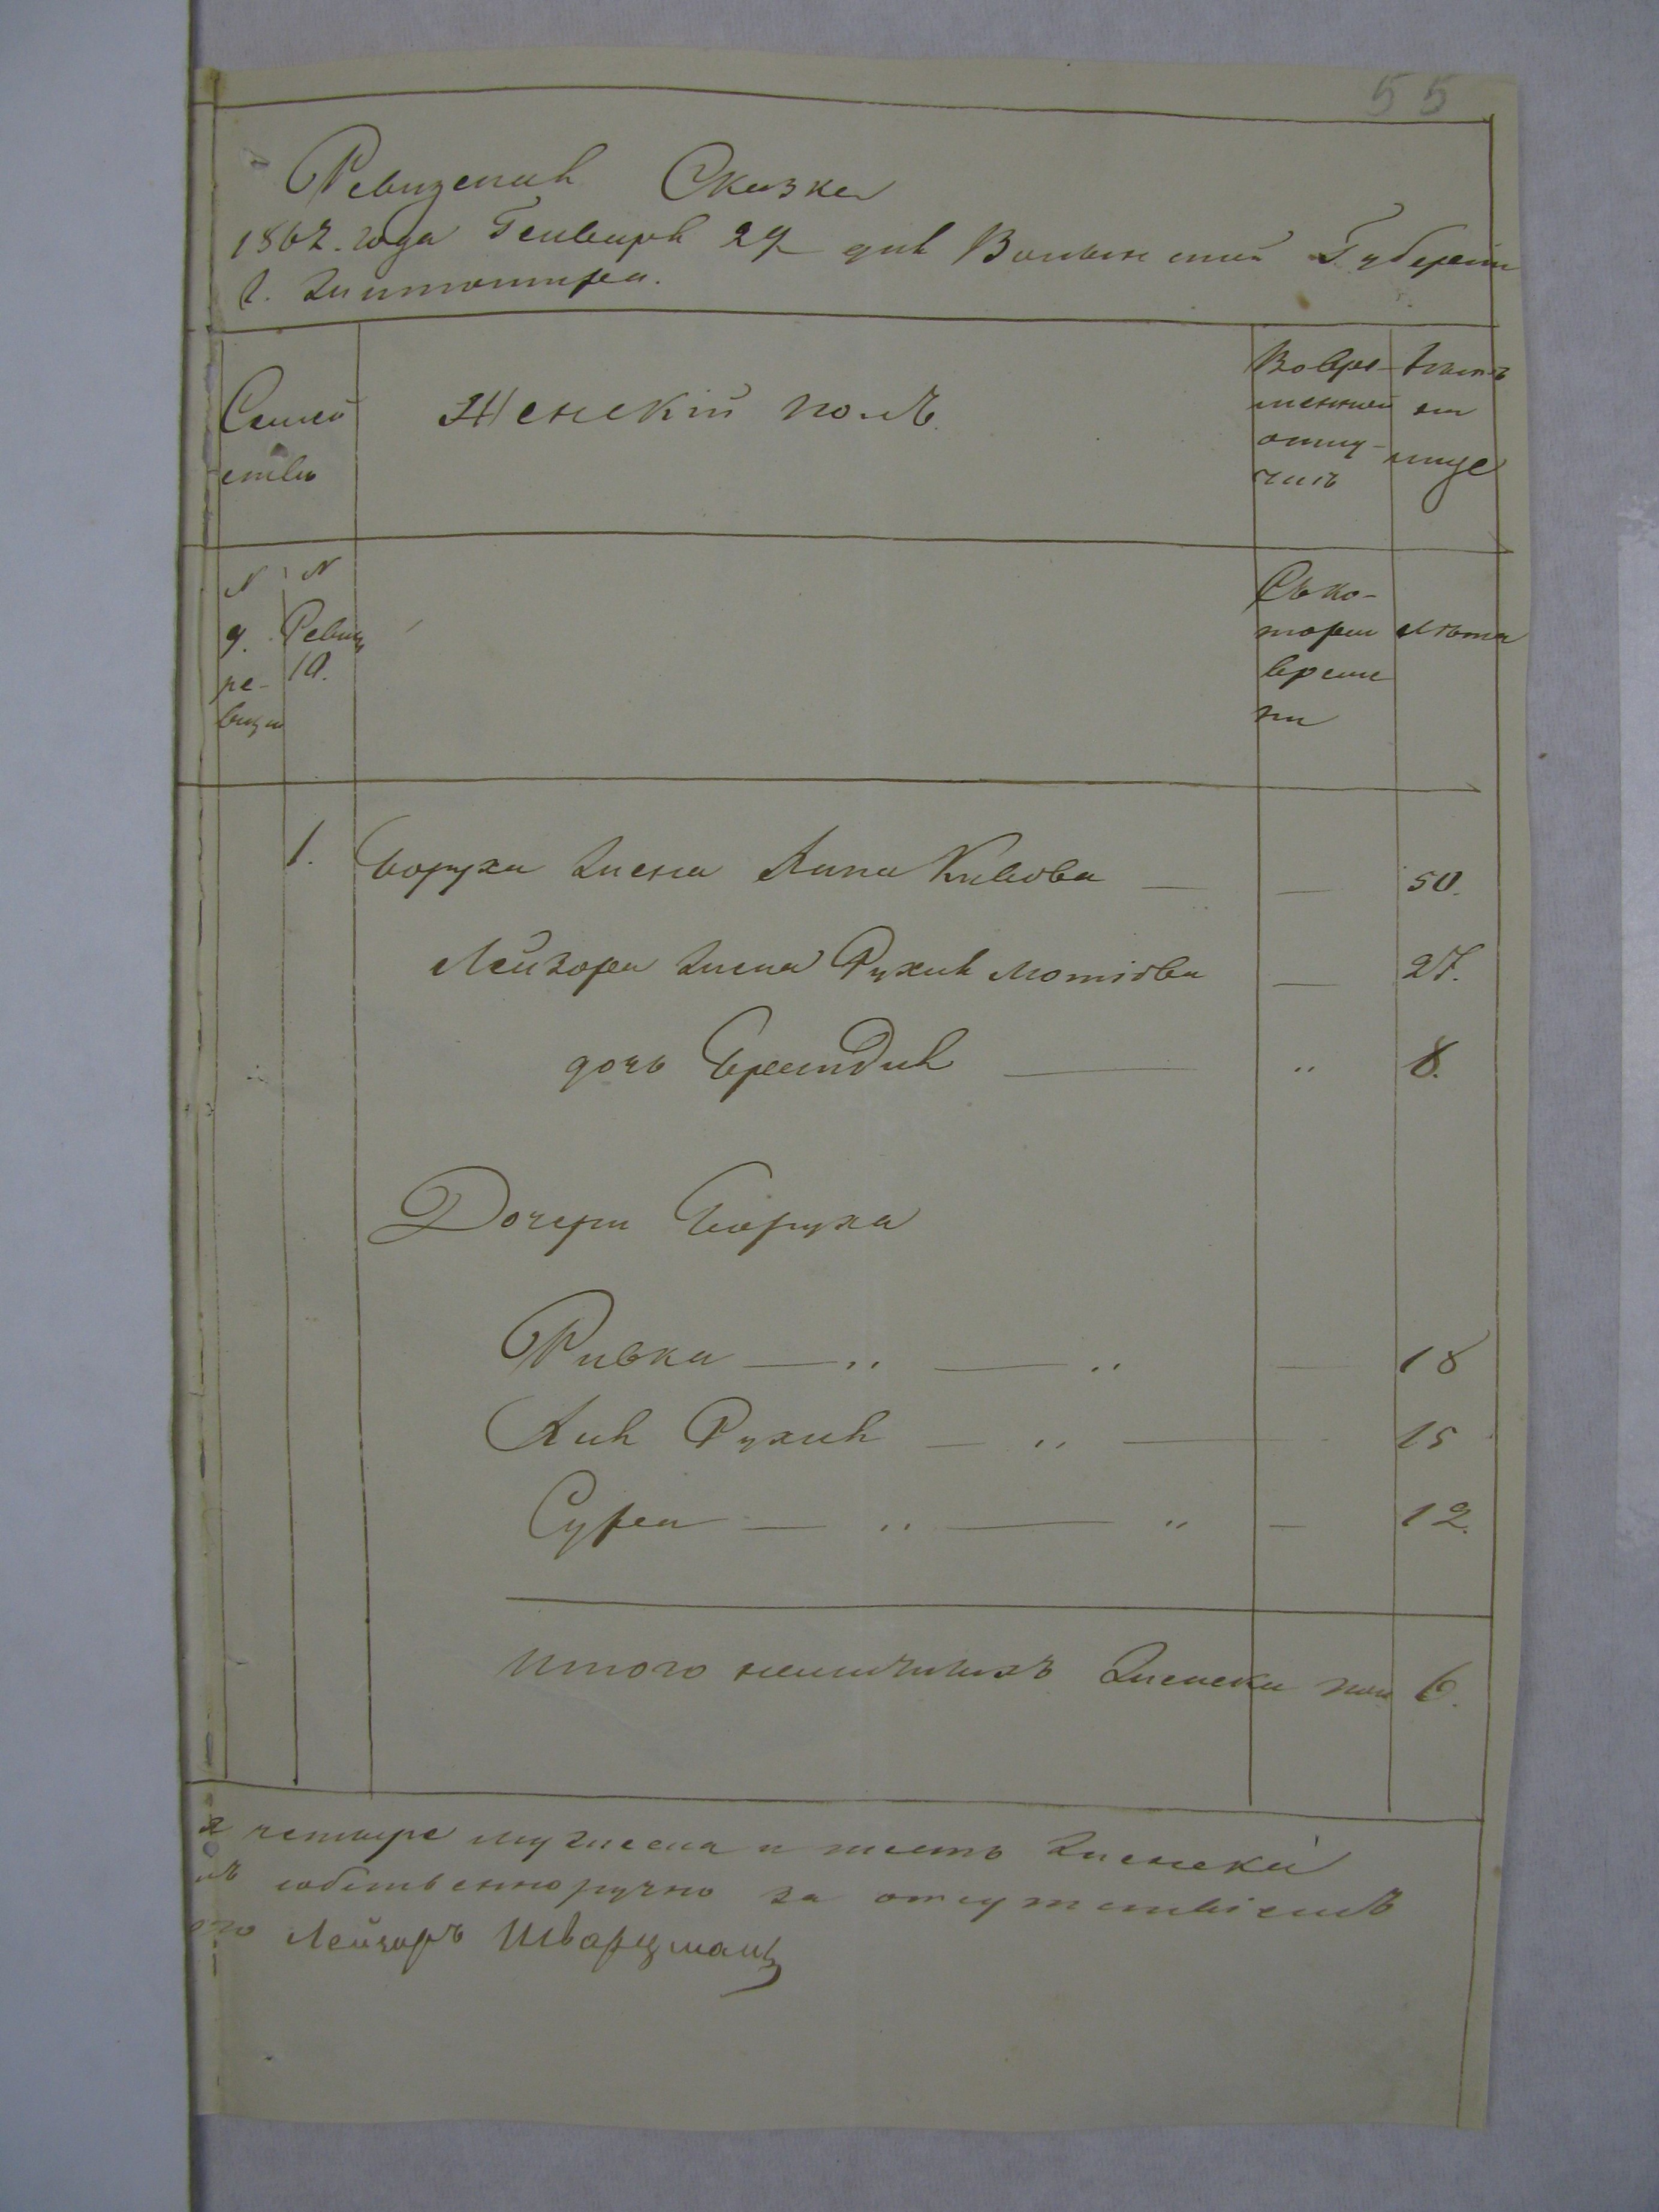 55
Ревизская Сказка
1862 года Генваря 29 дня Волынской Губернiи
г. Житомира.
Семей
ство
Женскiй полъ
Во вре-
менной
отлу-
чкѣ
Лѣтъ
на
лице
N
9.
ре-
визiи
N
Ревиз
10.
Съ ко-
тораго
време
ни
Лѣта
1. Боруха жена Хана Кивова — — 50.
Лейзора жена Рухля Мотiова — 27.
дочь Брейндля — " 8.
Дочери Боруха
Ривка — " — " — 18
Хая Рухля — " — 15
Сура — " — " — 12.
Итого наличныхъ женска пола 6.
четыре мужеска и шесть женска
собственноручно за отсутствiемъ
его Лейзоръ Шварцманъ